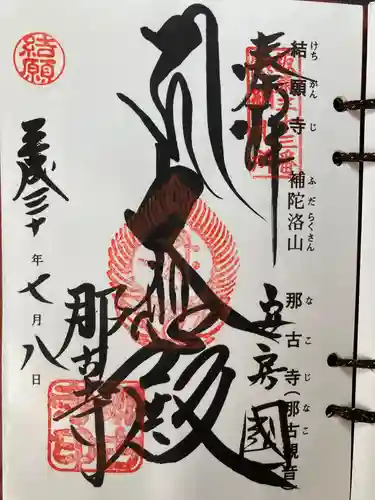 結願寺 補陀洛山 那古寺(那古観音)
けちがんじ ふだらくさん なこじ なこ
奉拝
安房國
大悲殿
那古寺
平成三十年七月八日
結願